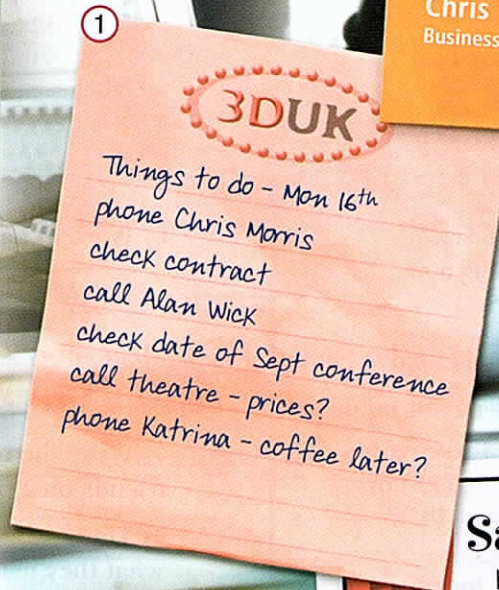 1
Chris
Business
3DUK
Things to do - Mon 16th
phone Chris Morris
check contract
call Alan Wick
check date of Sept conference
call theatre - prices?
phone Katrina - coffee later?